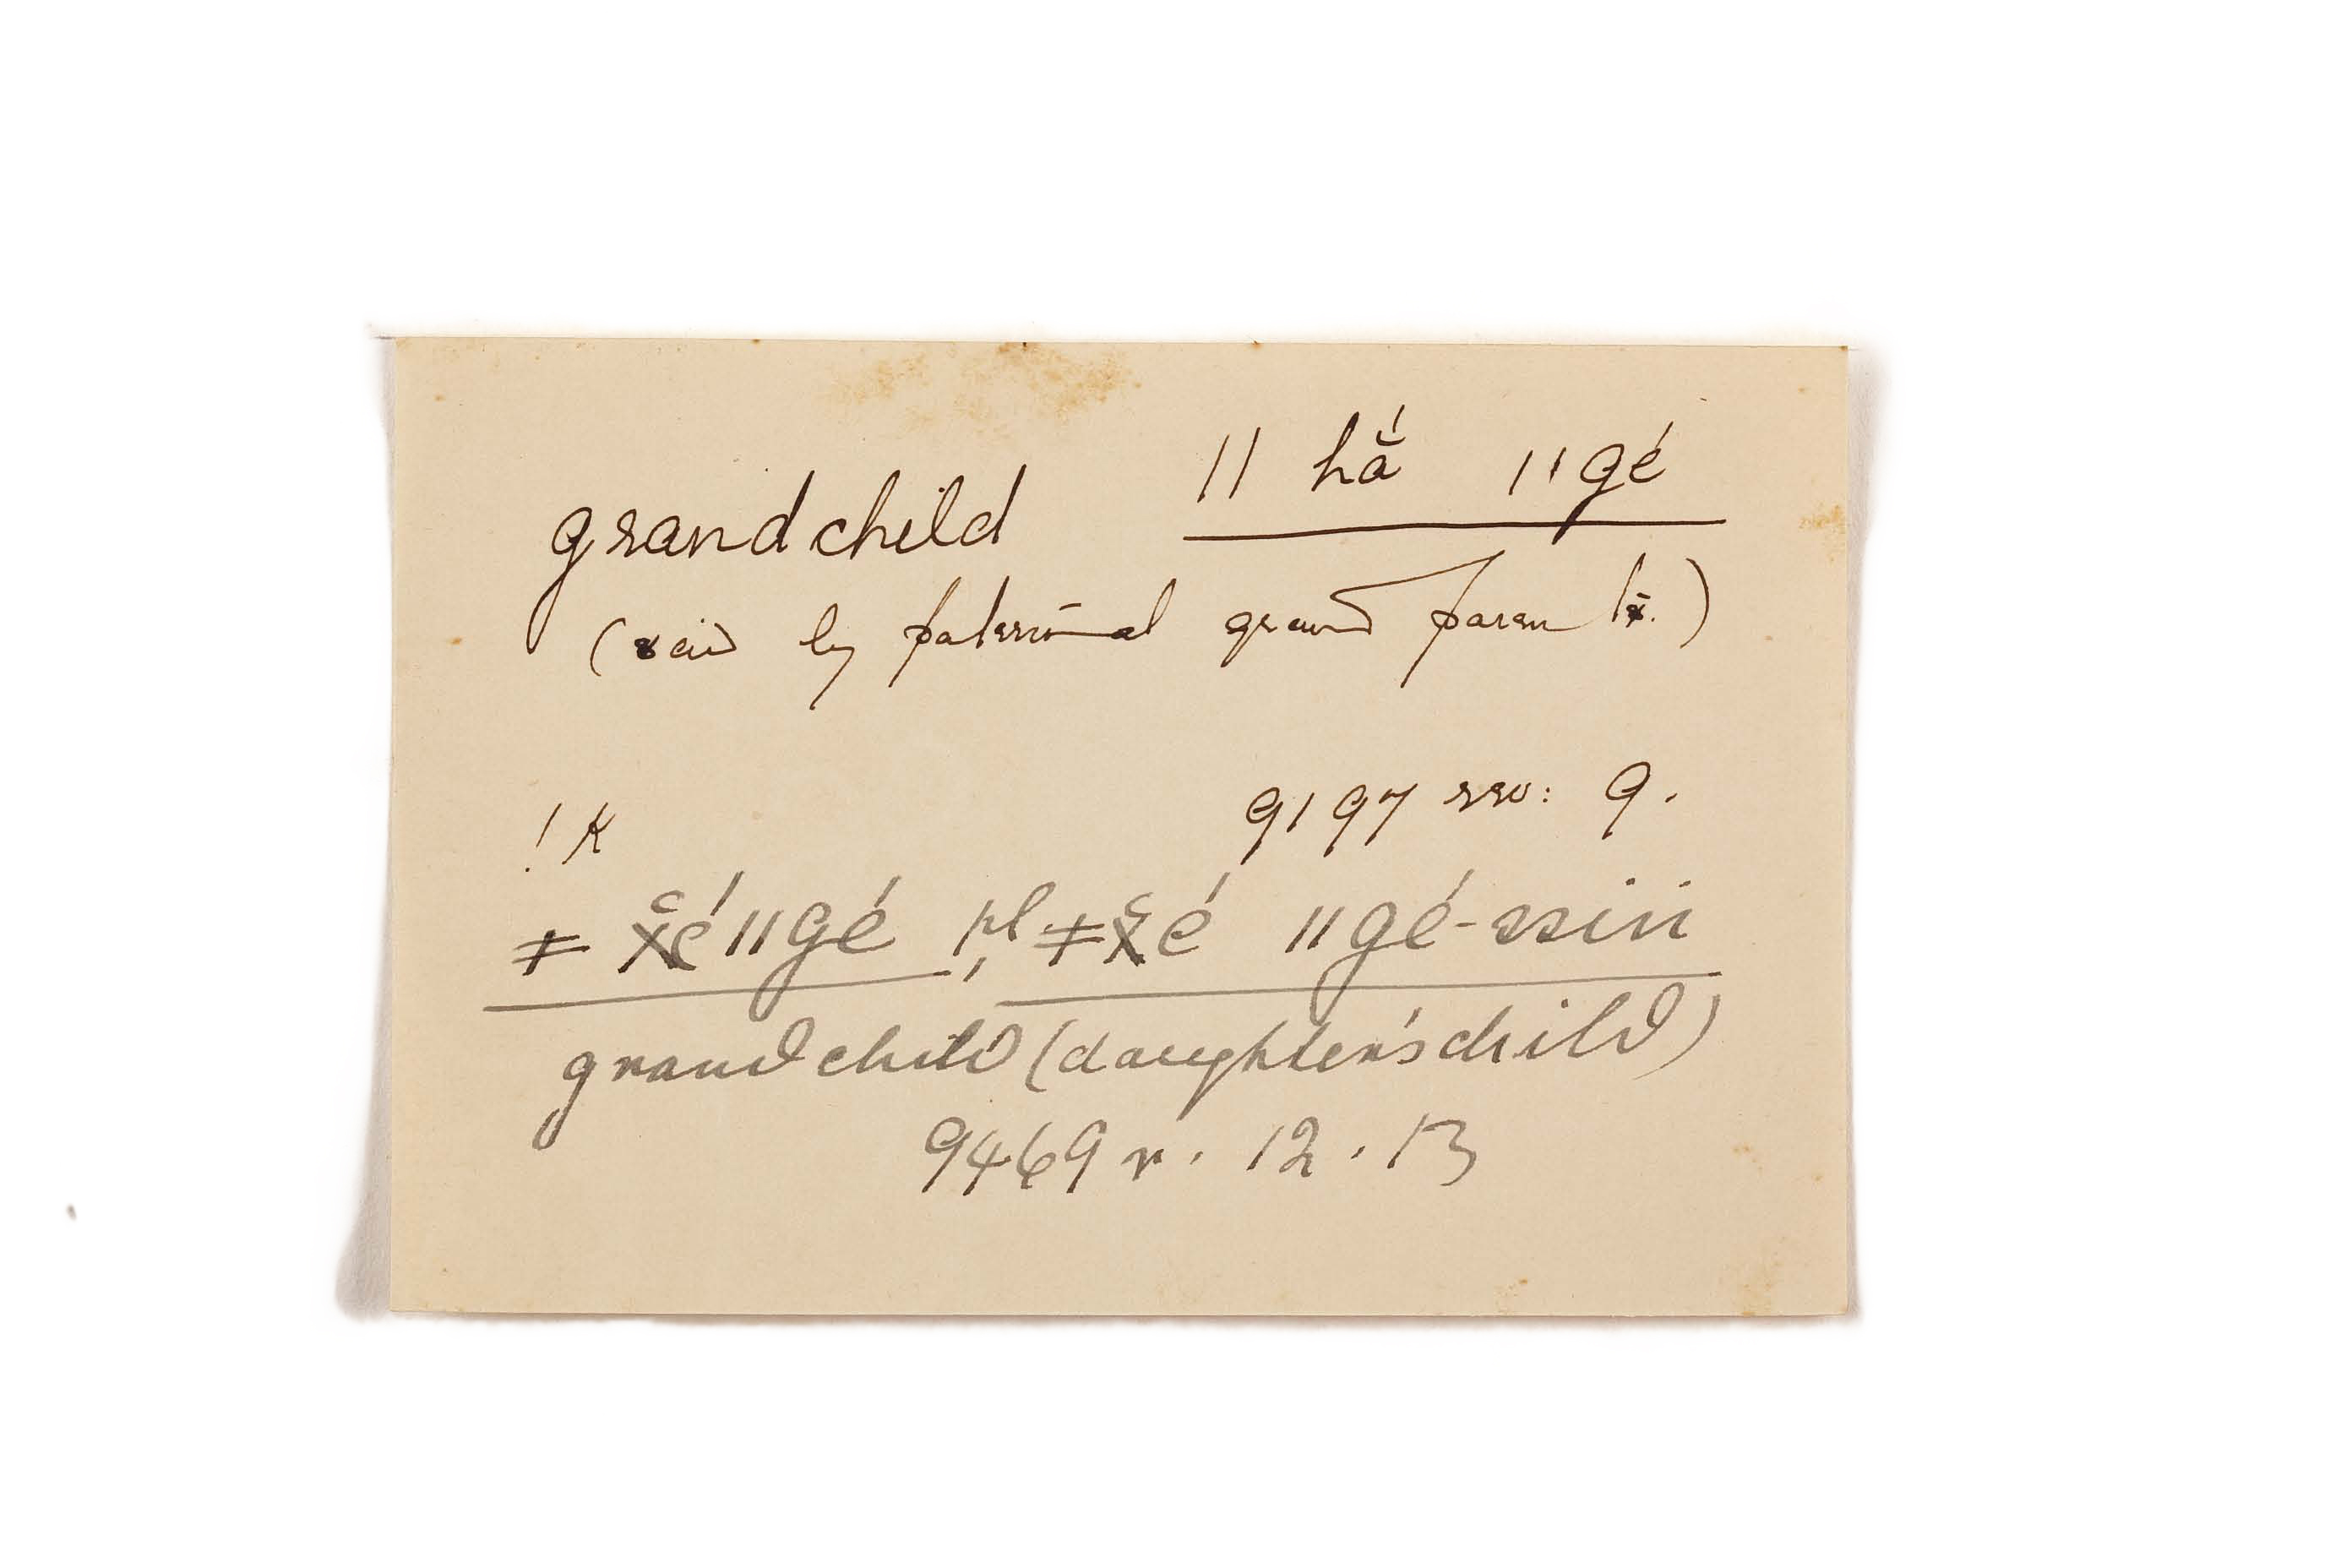 grandchild ǁ hắ ǁgé
(said by paternal grand parents.)
9197 rev: 9.
! K
ǂ χ̆é ǁgé pl, ǂχ̆é ǁgé-ssin
grandchild (daughter's child)
9469 r. 12. 13